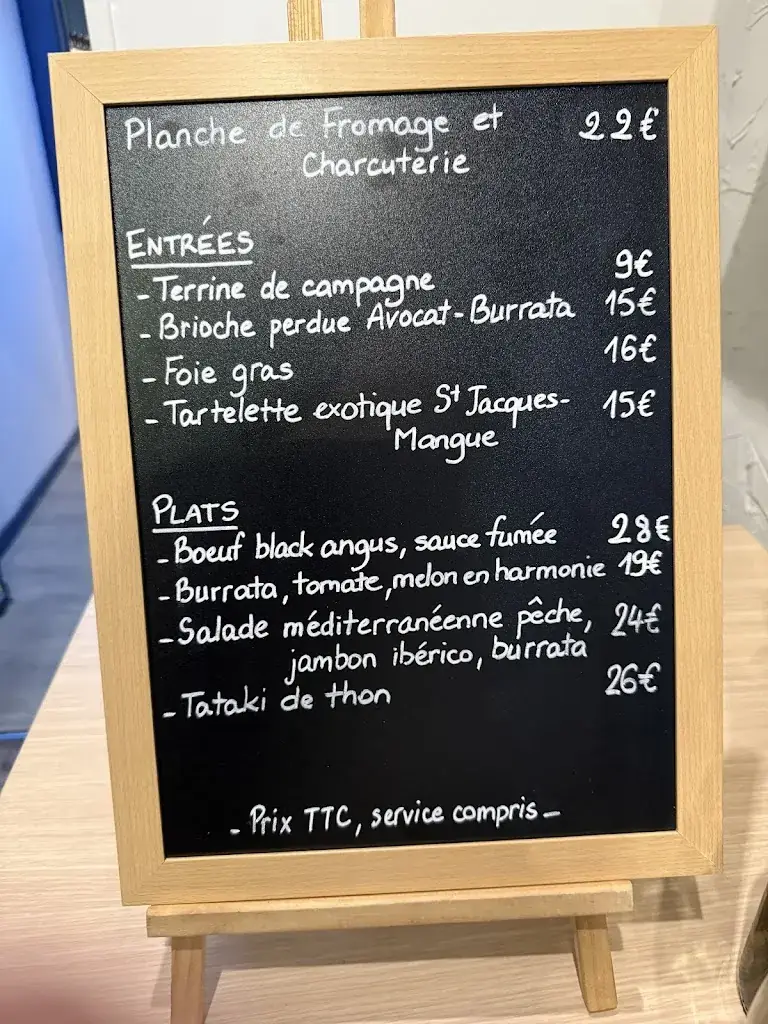 Planche de Fromage et 22€
Charcuterie
ENTRÉES
- Terrine de campagne 9€
- Brioche perdue Avocat-Burrata 15€
- Foie gras 16€
- Tartelette exotique St Jacques- 15€
Mangue
PLATS
- Boeuf black angus, sauce fumée 28€
- Burrata, tomate, melon en harmonie 19€
- Salade méditerranéenne pêche, 24€
jambon ibérico, burrata
- Tataki de thon 26€
- Prix TTC, service compris -